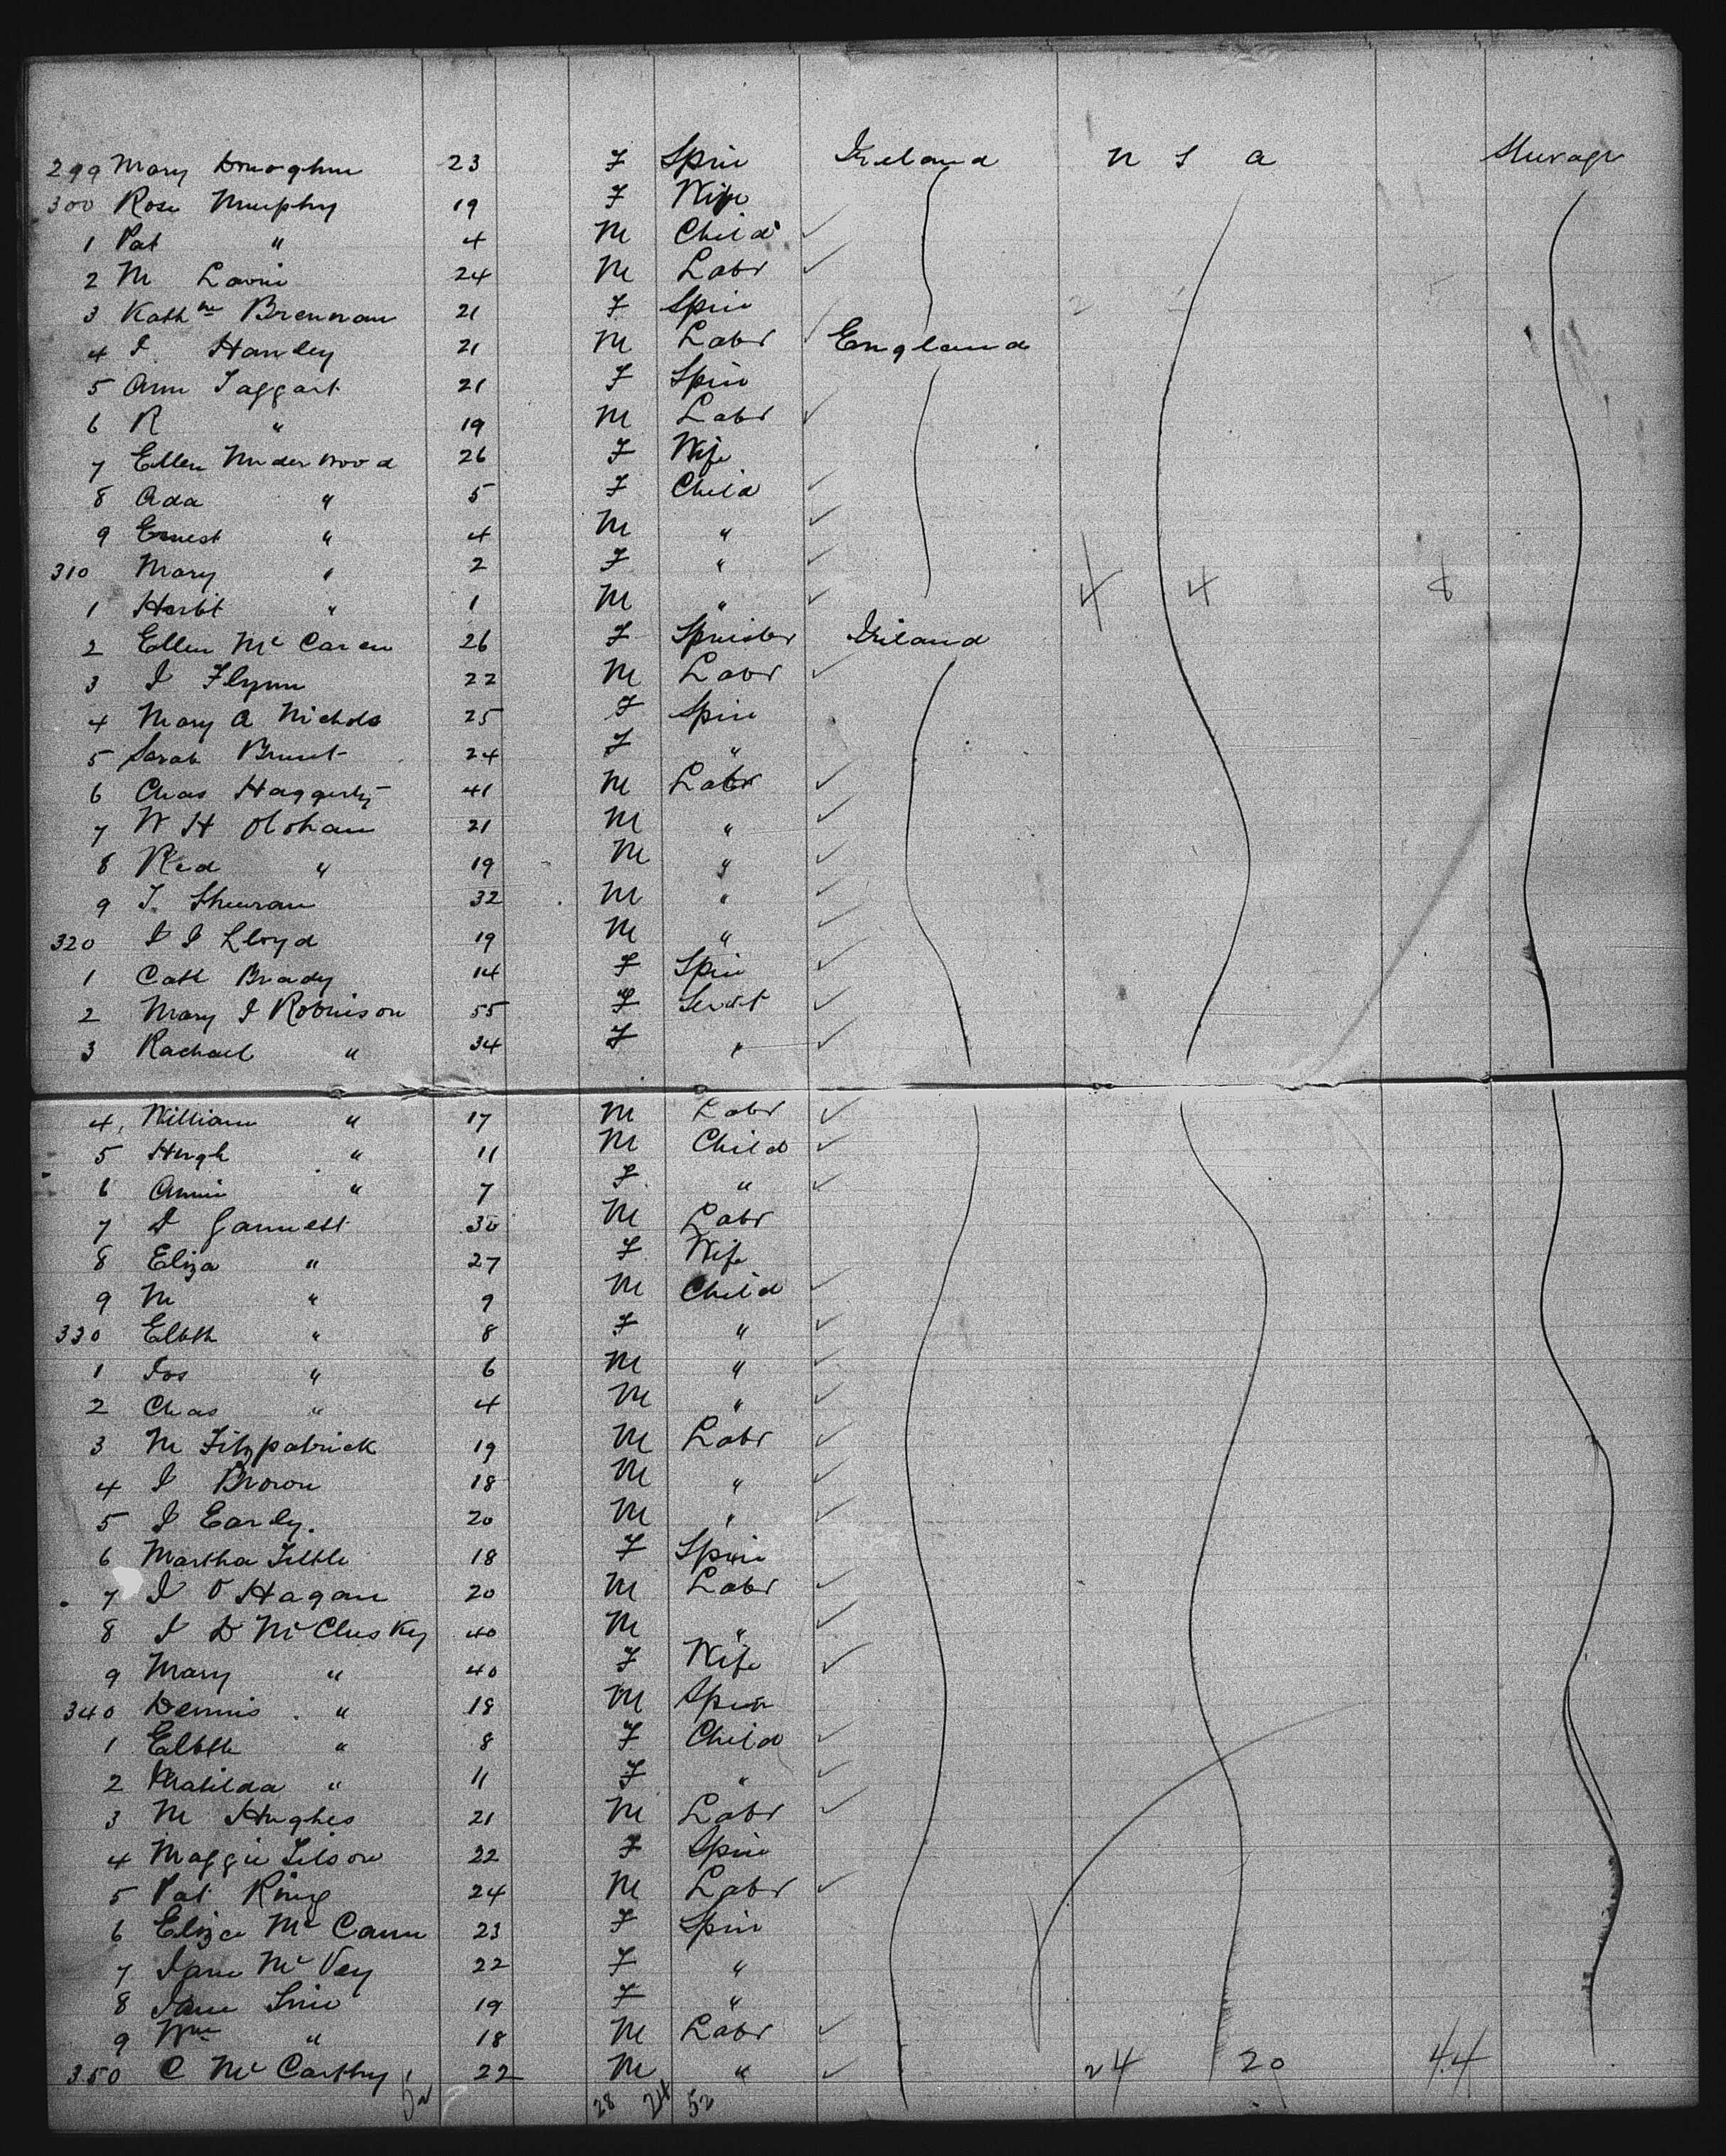 299 Mary Donoghue 23 F Spin Ireland U S A Steerage
300 Rose Murphy 19 F Wife
1 Pat " 4 M Child ✓
2 M 24 M Labr ✓
3 Kathne Brennan 21 F Spin
4 J Hanley 21 M Labr ✓ England
5 Ann Taggart 21 F Spin
6 R " 19 M Labr ✓
7 Ellen Underwood 26 F Wife
8 Ada " 5 F Child ✓
9 Ernest " 4 M " ✓
310 Mary " 2 F " ✓
1 Herbt " 1 M " ✓ 4 4 8
2 Ellen Mc Caren 26 F Spinster Ireland
3 J Flynn 22 M Labr ✓
4 Mary A Nichols 25 F Spin
5 Sarah 24 F "
6 Chas Haggerty 41 M Labr ✓
7 W H Olohan 21 M " ✓
8 Red " 19 M " ✓
9 T. 32 M " ✓
320 J J Lloyd 19 M " ✓
1 Cath Brady 14 F Spin ✓
2 Mary J Robinson 55 F Servt ✓
3 Rachael " 34 F " ✓
4 William " 17 M Labr ✓
5 Hugh " 11 M Child ✓
6 Annie " 7 F " ✓
7 J 30 M Labr
8 Eliza " 27 F Wife
9 M " 9 M Child ✓
330 Elbth " 8 F " ✓
1 Jos " 6 M " ✓
2 Chas " 4 M " ✓
3 M Fitzpatrick 19 M Labr ✓
4 J Brown 18 M " ✓
5 J Early. 20 M " ✓
6 Martha 18 F Spin
7 J O Hagan 20 M Labr ✓
8 J D McClusky 40 M " ✓
9 Mary " 40 F Wife ✓
340 Dennis " 18 M Spin
1 Elbth " 8 F Child ✓
2 Matilda " 11 F " ✓
3 M Hughes 21 M Labr ✓
4 Maggie 22 F Spin
5 Pat King 24 M Labr ✓
6 Eliza Mc Cann 23 F Spin
7 Jane Mc Vey 22 F "
8 Jane 19 F "
9 Wm " 18 M Labr ✓
350 C Mc Carthy 22 M " ✓ 24 20 44
52 28 24 52